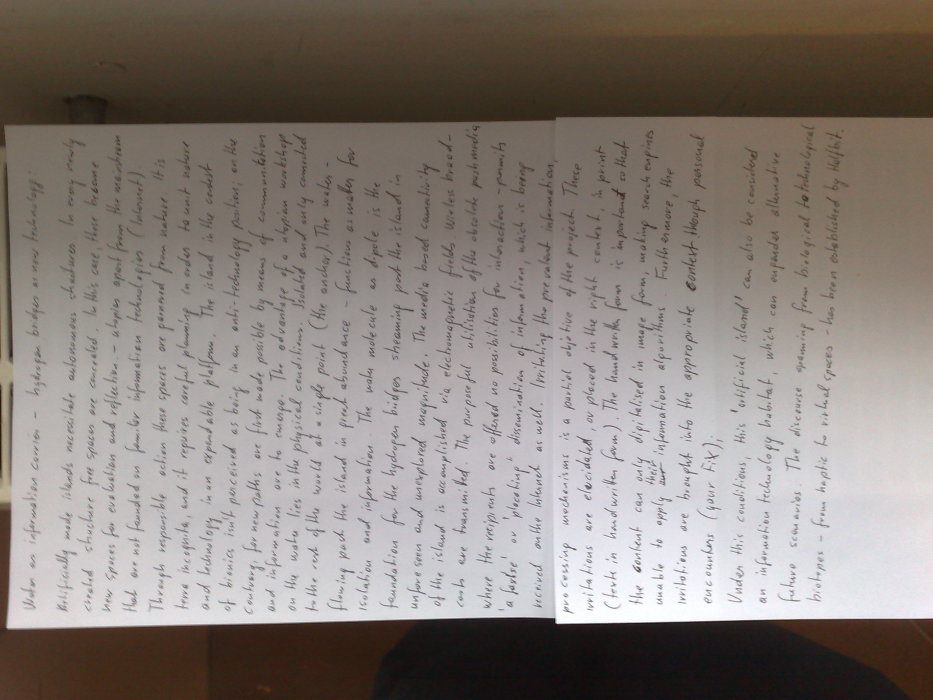 Water an information carrier - hydrogen bridges as new technology:
Artificially made islands necessitate autonomous structures. In every newly
created structure free spaces are concealed. In this case, these become
new spaces for evaluation and reflection; - utopias apart from the mainstream
that are not founded on familiar information technologies (Internet).
Through responsible action these spaces are garnered from nature. It is
terra incognita, and it requires careful planning in order to unit nature
and technology in an expandable platform. The island in the context
of bionics isn't perceived as being in an anti-technology position; on the
contrary, for new paths are first made possible by means of communication
and information are to emerge. The advantage of a utopian workshop
on the water lies in the physical conditions. Isolated and only connected
to the rest of the world at a single point (the anchor). The water -
flowing past the island in great abundance - functions as media for
isolation and information. The water molecule as dipole is the
foundation for the hydrogen bridges streaming past the island in
unforeseen and unexplored magnitude. The media based connectivity
of the island is accomplished via electromagnetic fields. Wireless broad-
casts are transmitted. The purposeful utilisation of the obsolete postmedia
where the recipients are offered no possibilities for interaction - permits
'a fortre or pleating' dissemination of information, which is being
received on the Internet as well. Irritating the prevalent information
processing mechanisms is a partial objective of the project. These
irritations are elucidated, or placed in the right context, in print
(texts in handwritten form). The handwritten form is important so that
the content can only digitalised in image form, making search engines
unable to apply their information algorithms. Furthermore, the
irritations are brought into the appropriate context though personal
encounters (your fix);
Under this conditions, this 'artificial island' can also be considered
an information technology habitat, which can engender alternative
future scenarios. The discourse spanning from biological to technological
biotopes - from haptic to virtual spaces - has been established by Halfbit.